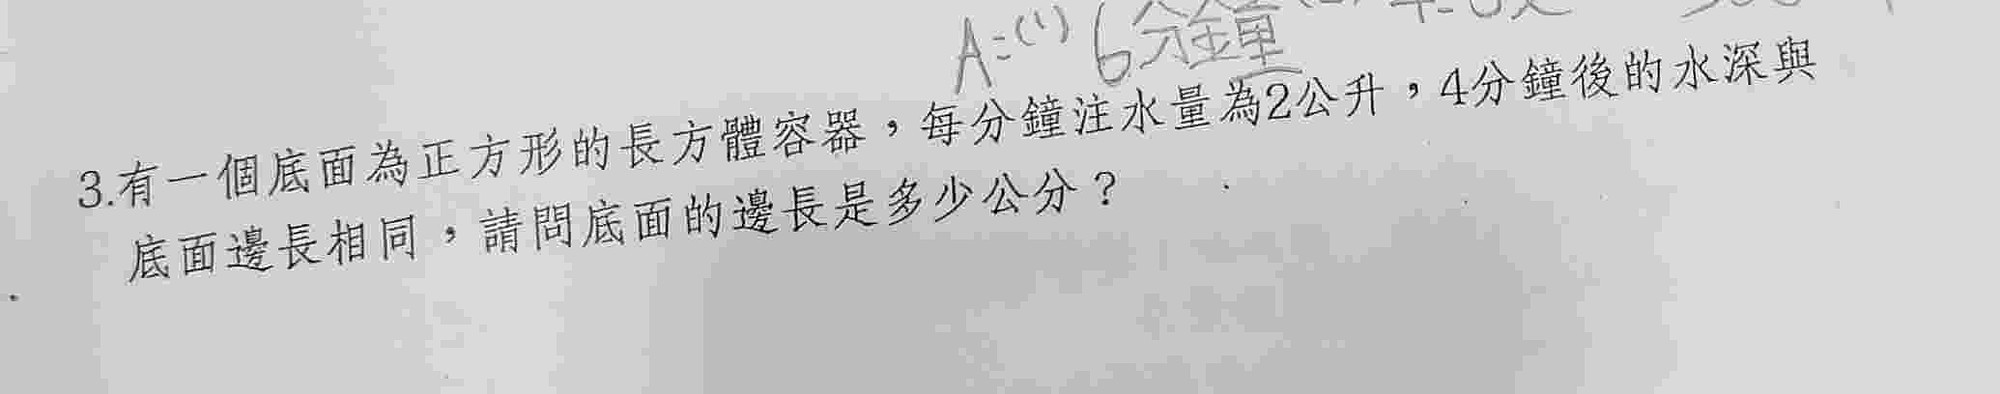 A=(1) 6分鐘
3.有一個底面為正方形的長方體容器，每分鐘注水量為2公升，4分鐘後的水深與
底面邊長相同，請問底面的邊長是多少公分？